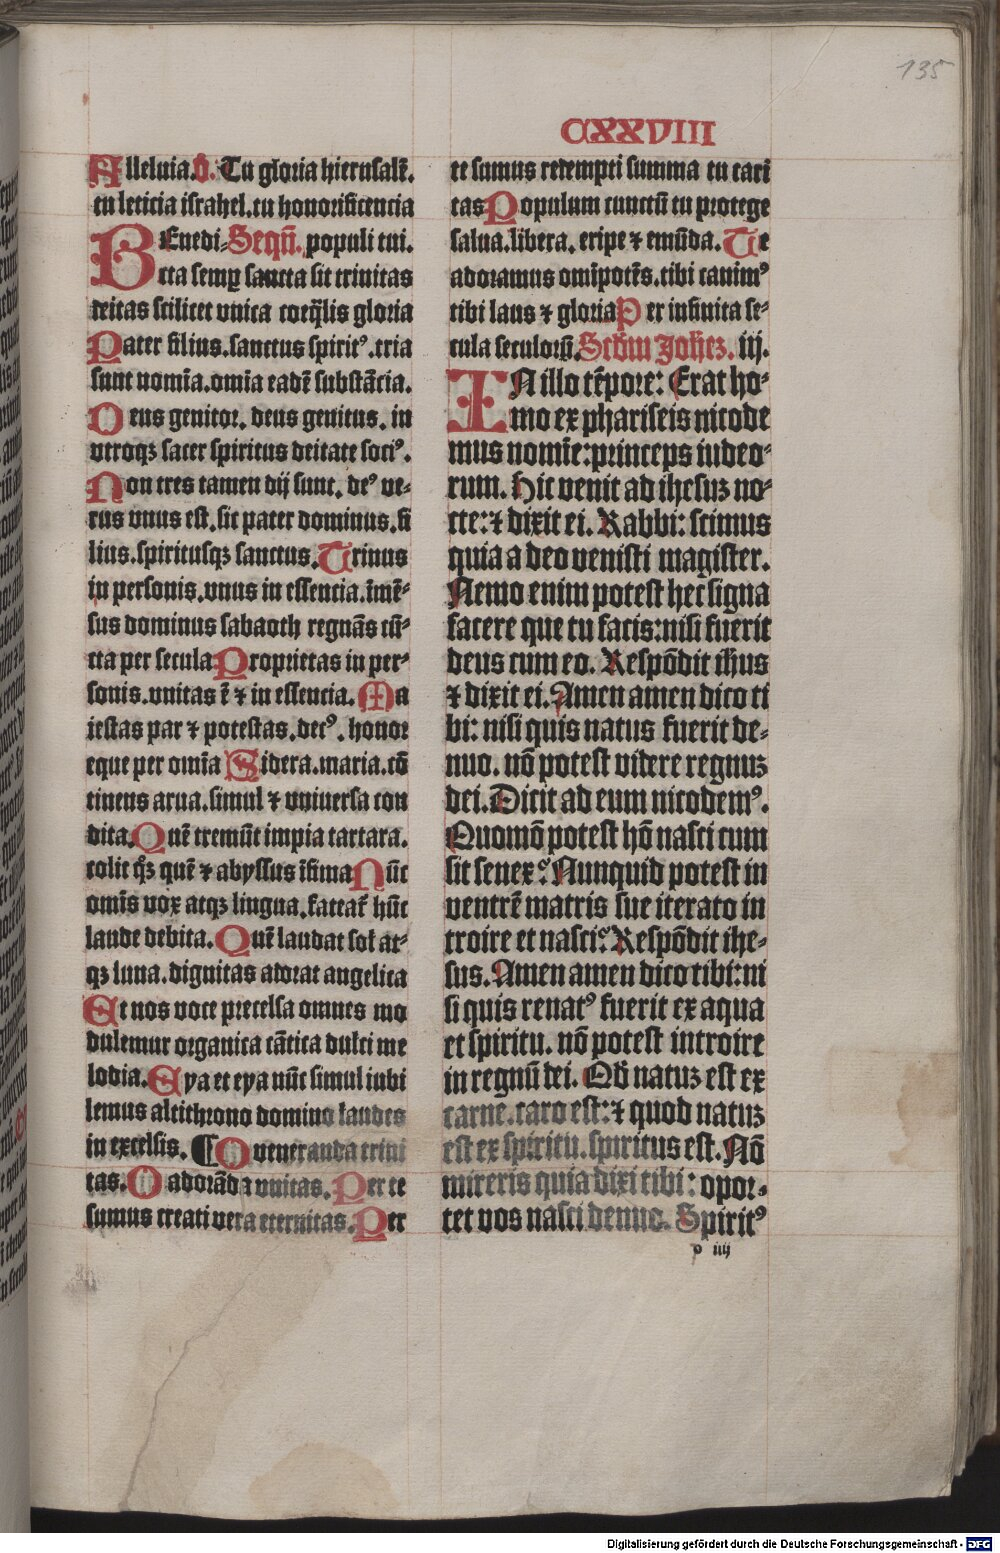 135
CXXVIII
Alleluia. V̊. Tu gloria hierusalē.
tu leticia israhel. tu honorificencia
BEnedi- Sequē. populi tui.
cta semꝑ sancta sit trinitas
deitas scilicet vnica coeq̄lis gloria
Pater filius. sanctus spiritꝰ. tria
sunt nomīa. omīa eadē substācia.
Deus genitor. deus genitus. in
vtroqꝫ sacer spiritus deitate sociꝰ.
Non tres tamen dij sunt. deꝰ ve-
rus vnus est. sic pater dominus. fi
lius. spiritusqꝫ sanctus. Trinus
in personis. vnus in essencia. īmē-
sus dominus sabaoth regnās cū-
cta per secula Proprietas in per-
sonis. vnitas ē ⁊ in essencia. Ma
iestas par ⁊ potestas. decꝰ. honor
eque per omīa Sidera. maria. cō
tinens arua. simul ⁊ vniuersa con
dita. Quē tremūt impia tartara.
colit qͦꝫ quē ⁊ abyssus īfima Nūc
omīs vox atqꝫ lingua. fateat᷑ hūc
laude debita. Quē laudat sol at-
qꝫ luna. dignitas adorat angelica
Et nos voce precelsa omnes mo
dulemur organica cātica dulci me
lodia. Eya et eya nūc simul iubi
lemus altithrono domino laudes
in excelsis. ¶ O veneranda trini
tas. O adorāda vnitas. Per te
sumus creati vera eternitas. Per
te sumus redempti summa tu cari
tas Populum cunctū tu protege
salua. libera. eripe ⁊ emūda. Te
adoramus omīpotēs. tibi canimꝰ
tibi laus ⁊ gloria Per infinita se-
cula seculorū. Scd̄m Joh̄ez. iij.
IN illo tēpore: Erat ho-
mo ex phariseis nicode
mus nomīe: princeps iudeo-
rum. Hic venit ad ihesuꝫ no-
cte: ⁊ dixit ei. Rabbi: scimus
quia a deo venisti magister.
Nemo enim potest hec signa
facere que tu facis: nisi fuerit
deus cum eo. Respōdit ih̄us
⁊ dixit ei. Amen amen dico ti
bi: nisi quis natus fuerit de-
nuo. nō potest videre regnuꝫ
dei. Dicit ad eum nicodemꝰ.
Quomō potest hō nasci cum
sit senex? Nunquid potest in
ventrē matris sue iterato in
troire et nasci? Respōdit ihe-
sus. Amen amen dico tibi: ni
si quis renatꝰ fuerit ex aqua
et spiritu. nō potest introire
in regnū dei. Qd̄ natuꝫ est ex
carne. caro est: ⁊ quod natuꝫ
est ex spiritu. spiritus est. Nō
mireris quia dixi tibi: opor-
tet vos nasci denuo. Spiritꝰ
p iiij
Digitalisierung gefördert durch die Deutsche Forschungsgemeinschaft - DFG